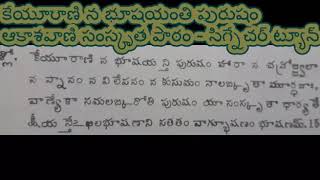 కేయూరాణి న భూషయంతి పురుషం
ఆకాశవాణి సంస్కృత పాఠం - సిగ్నేచర్ ట్యూన్
శ్లో. కేయూరాణి న భూషయన్తి పురుషం హారా న చన్ద్రోజ్జ్వలా
న స్నానం న విలేపనం న కుసుమం నాలఙ్కృతా మూర్ధజాః,
వాణ్యేకా సమలఙ్కరోతి పురుషం యా సంస్కృతా ధార్యతే
క్షీయన్తేఽఖిలభూషణాని సతతం వాగ్భూషణం భూషణమ్. 15